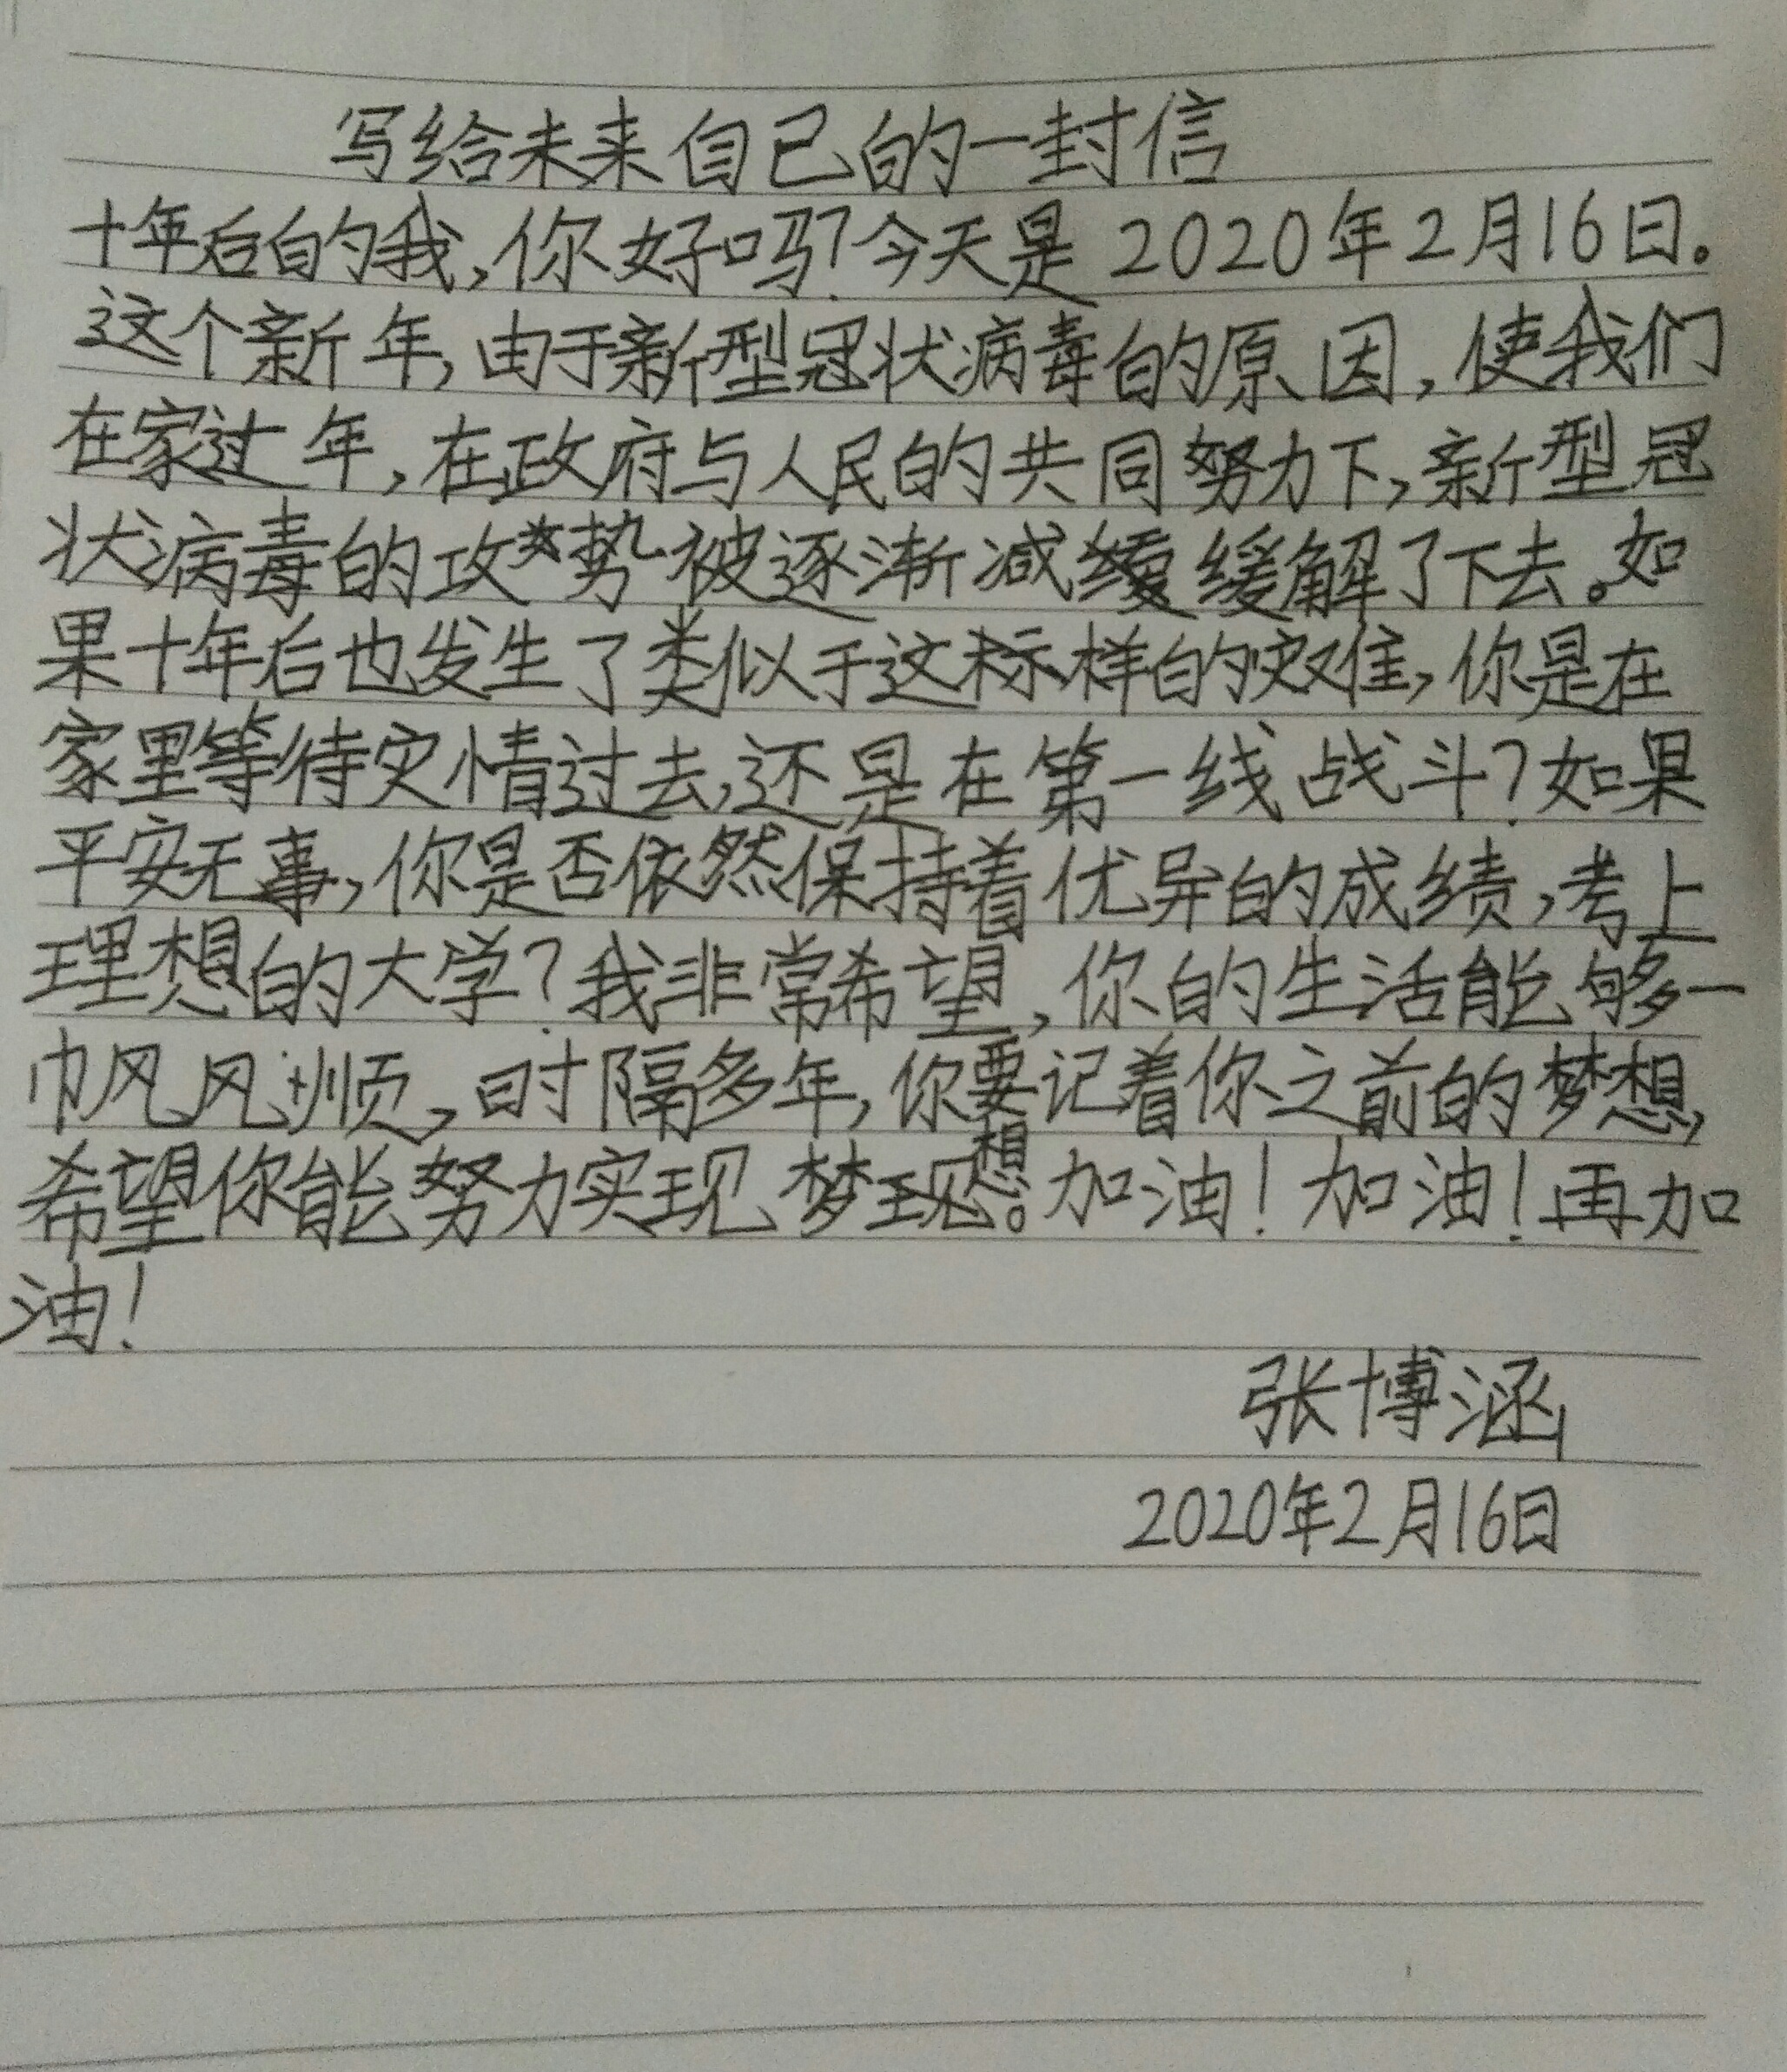 写给未来自己的一封信
十年后的我,你好吗?今天是2020年2月16日。
这个新年,由于新型冠状病毒的原因,使我们
在家过年,在政府与人民的共同努力下,新型冠
状病毒的攻势被逐渐减缓解了下去。如
果十年后也发生了类似于这样的灾难,你是在
家里等待灾情过去,还是在第一线战斗?如果
平安无事,你是否依然保持着优异的成绩,考上
理想的大学?我非常希望,你的生活能够一
帆风风顺,时隔多年,你要记着你之前的梦想,
希望你能努力实现梦想。加油!加油!再加
油!
张博涵
2020年2月16日